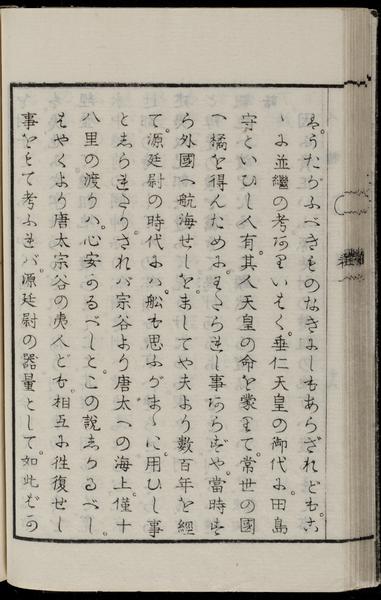 はうたがふべきものなきにしもあらざれども。こ
ゝに並繼の考ありいはく。垂仁天皇の御代に田島
守といひし人有。其人天皇の命を蒙りて。常世の國
へ橘を得んためにわたられし事あらずや。當時す
ら外國へ航海せしを。ましてや夫より數百年を經
て。源廷尉の時代には。船も思ふがまゝに。用ひし事
としられたり。されバ宗谷より唐太への海上。僅十
八里の渡りハ。心安かるべしと。この說しかるべし。
はやくより唐太宗谷の夷人ども。相互に徃復せし
事をもて考ふればバ源廷尉の器量として。如此ばかの